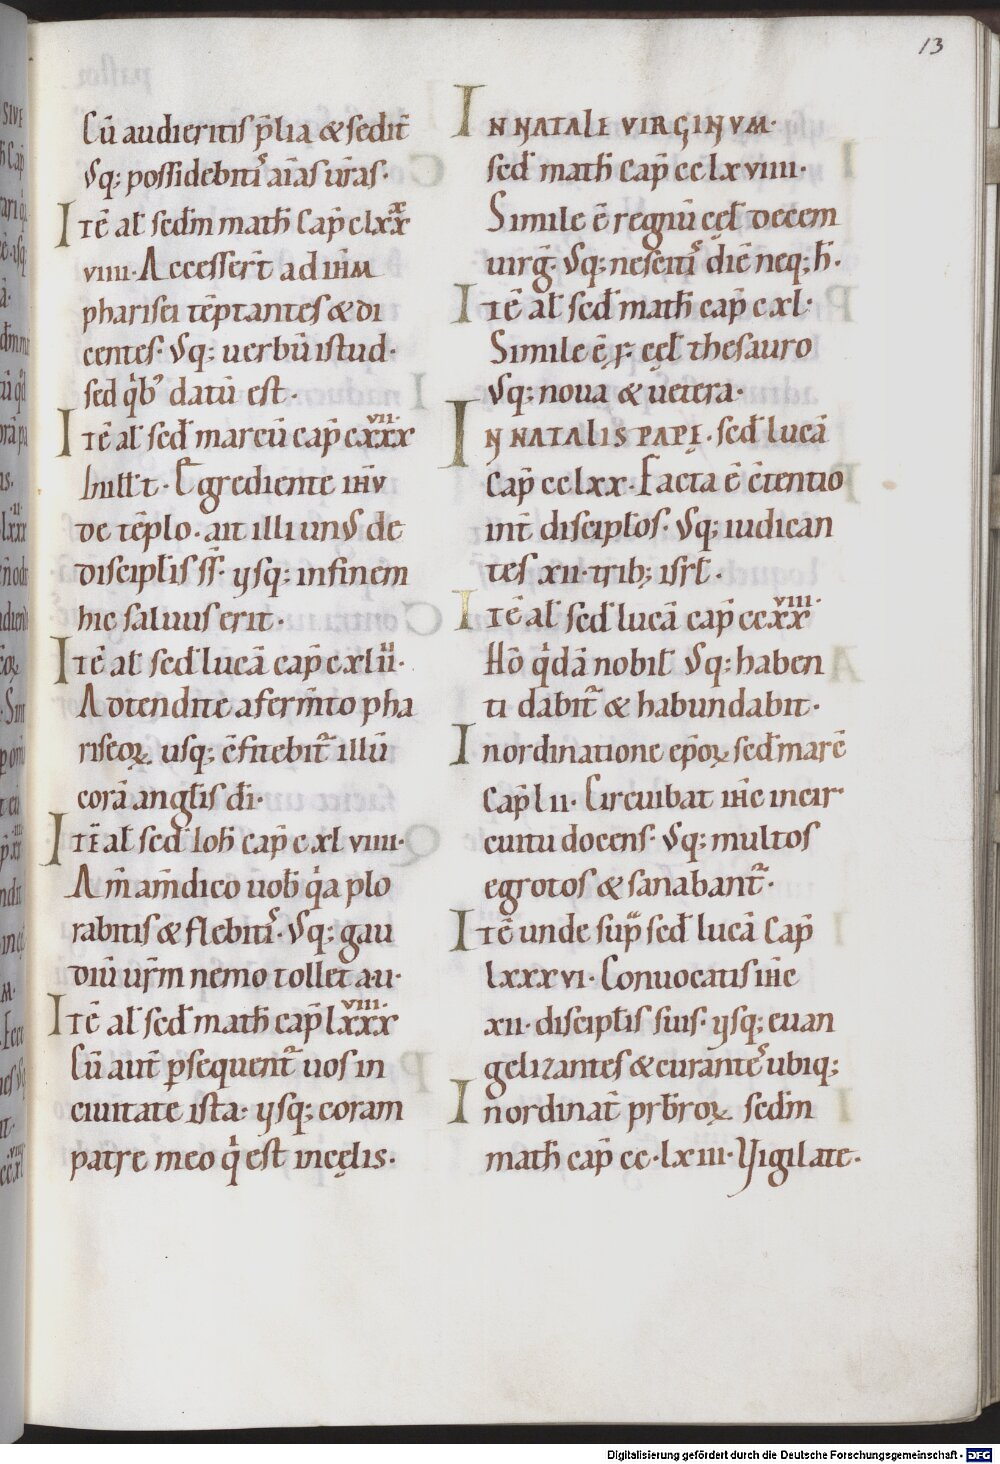 13
Cū audieritis p̄lia & sedit̄
Vsq; possidebitis aīas ūras·
Itē al̄ sed̄m math̄ cap̄ clxxx
viiii· Accesser̄t ad ih̄m
pharisei tēptantes & di
centes· Vsq; uerbū istud·
sed q'b' datū est·
Itē al̄ sed̄ marcū cap̄ cxxxvii·
In ill̄ t· Egrediente ih̄v
de tēplo· ait illi unus de
discipl̄is s̄s̄· vsq; in finem
hic saluus erit·
Itē al̄ sed̄ lucā cap̄ cxliii·
Adtendite a ferm̄to pha
riseoꝝ usq; c̄fitebit̄ illū
corā angl̄is d̄i·
Itē al̄ sed̄ ioh̄ cap̄ cxlviiii·
Am̄ am̄ dico uob̄ q'a plo
rabitis & flebitis· Vsq; gau
diū ur̄m nemo tollet a·u·
Itē al̄ sed̄ math̄ cap̄ lxxxviii·
Cū aut̄ ꝑsequent̄ uos in
ciuitate ista· vsq; coram
patre meo q' est in cęlis·
IN NATALE VIRGINVM·
sed̄ math̄ cap̄ cclxviiii·
Simile ē regnū cęl̄ decem
uirḡ· Vsq; nescitis diē neq; h̄·
Itē al̄ sed̄ math̄ cap̄ cxl·
Simile ē r̄· cęl̄ thesauro
Vsq; noua & uetera·
IN NATALIS PAPE· sed̄ lucā
cap̄ cclxx· Facta ē c̄tentio
int̄ discipl̄os· Vsq; iudican
tes xii· trib; isrl̄·
Itē al̄ sed̄ lucā cap̄ ccxxviii·
Hō q'dā nobil̄ Vsq; haben
ti dabit̄ & habundabit·
In ordinatione ep̄oꝝ sed̄ marc̄
Cap̄l ii· Circuibat ih̄c in cir
cuitu docens· Vsq; multos
egrotos & sanabant̄·
Itē unde sup̄ sed̄ lucā cap̄
lxxxvi· Conuocatis ih̄c
xii· discipl̄is suis· vsq; euan
gelizantes & curantes ubiq;
In ordinat̄ prb̄roꝝ sed̄m
math̄ cap̄ cc·lxiii· Vigilate·
Digitalisierung gefördert durch die Deutsche Forschungsgemeinschaft - DFG